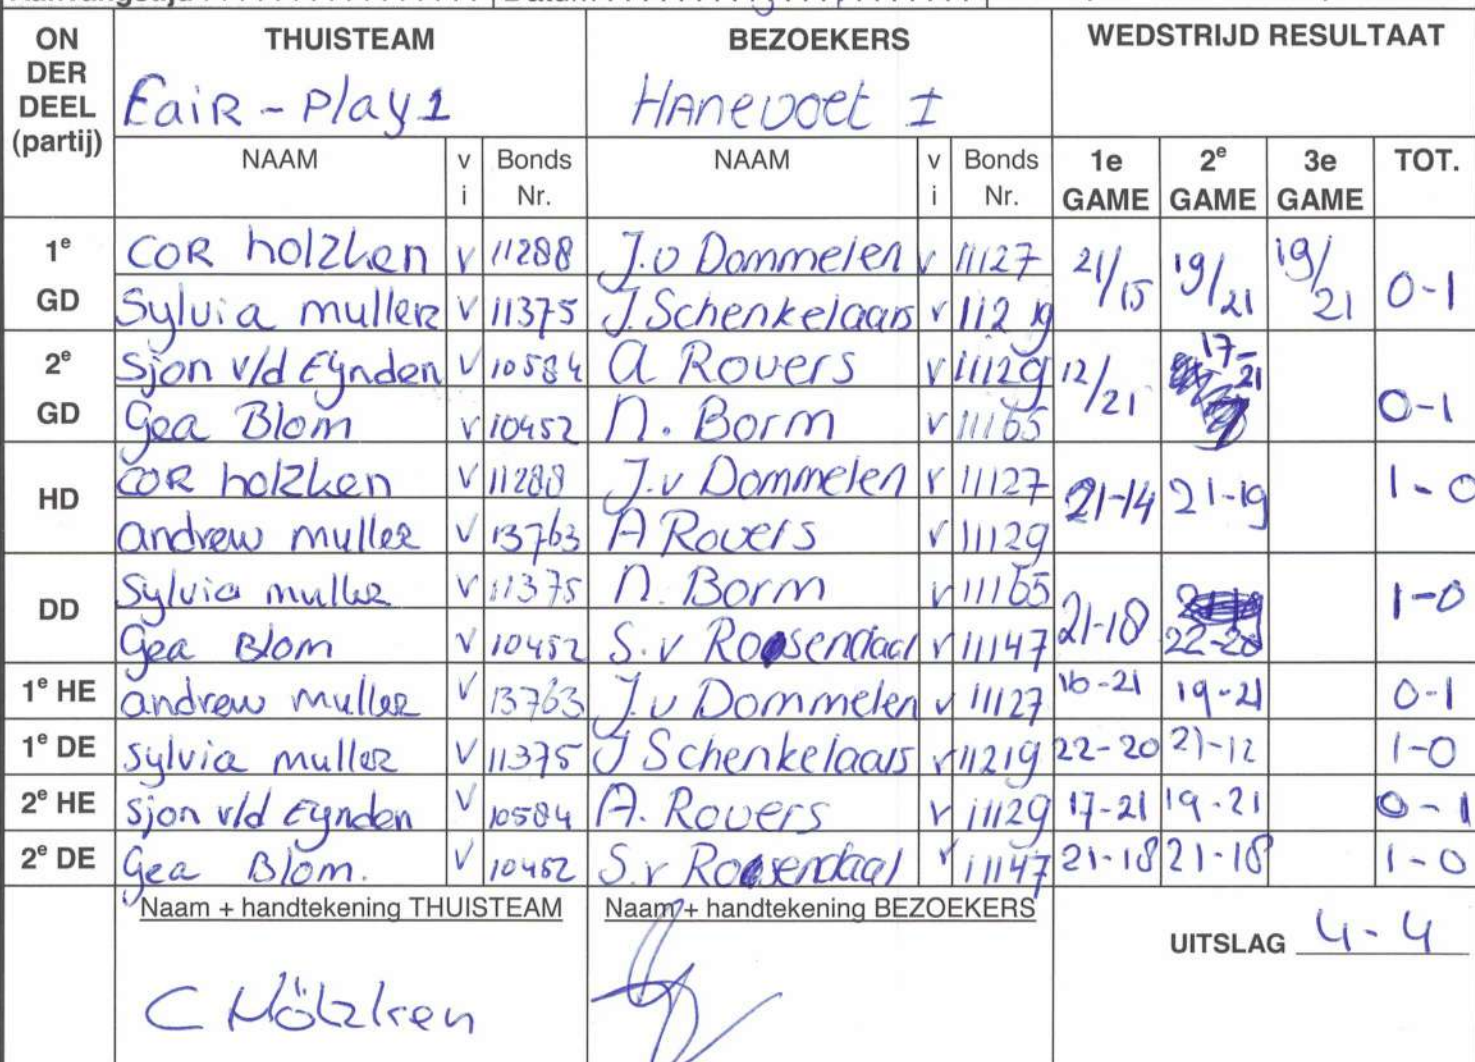 ON DER DEEL (partij) THUISTEAM BEZOEKERS WEDSTRIJD RESULTAAT
Fair-Play 1 Hanevoet I
NAAM vi Bonds Nr. NAAM vi Bonds Nr. 1e GAME 2e GAME 3e GAME TOT.
1e GD COR holzken v 11288 J.v Dommelen v 11127 21/15 19/21 19/21 0-1
Sylvia muller v 11375 J. Schenkelaars v 11219
2e GD Sjon v/d Eynden v 10584 a Rovers v 11129 12/21 17-21 0-1
Gea Blom v 10452 n. Borm v 11165
HD COR holzken v 11288 J.v Dommelen v 11127 21-14 21-19 1-0
andrew muller v 13763 A Rovers v 11129
DD Sylvia muller v 11375 n. Borm v 11165 21-18 22-20 1-0
Gea Blom v 10452 S. v Roosendaal v 11147
1e HE andrew muller v 13763 J.v Dommelen v 11127 16-21 19-21 0-1
1e DE Sylvia muller v 11375 J Schenkelaars v 11219 22-20 21-12 1-0
2e HE Sjon v/d Eynden v 10584 A. Rovers v 11129 17-21 19-21 0-1
2e DE Gea Blom. v 10452 S.v Roosendaal v 11147 21-18 21-18 1-0
Naam + handtekening THUISTEAM Naam + handtekening BEZOEKERS
UITSLAG 4-4
C Hölzken